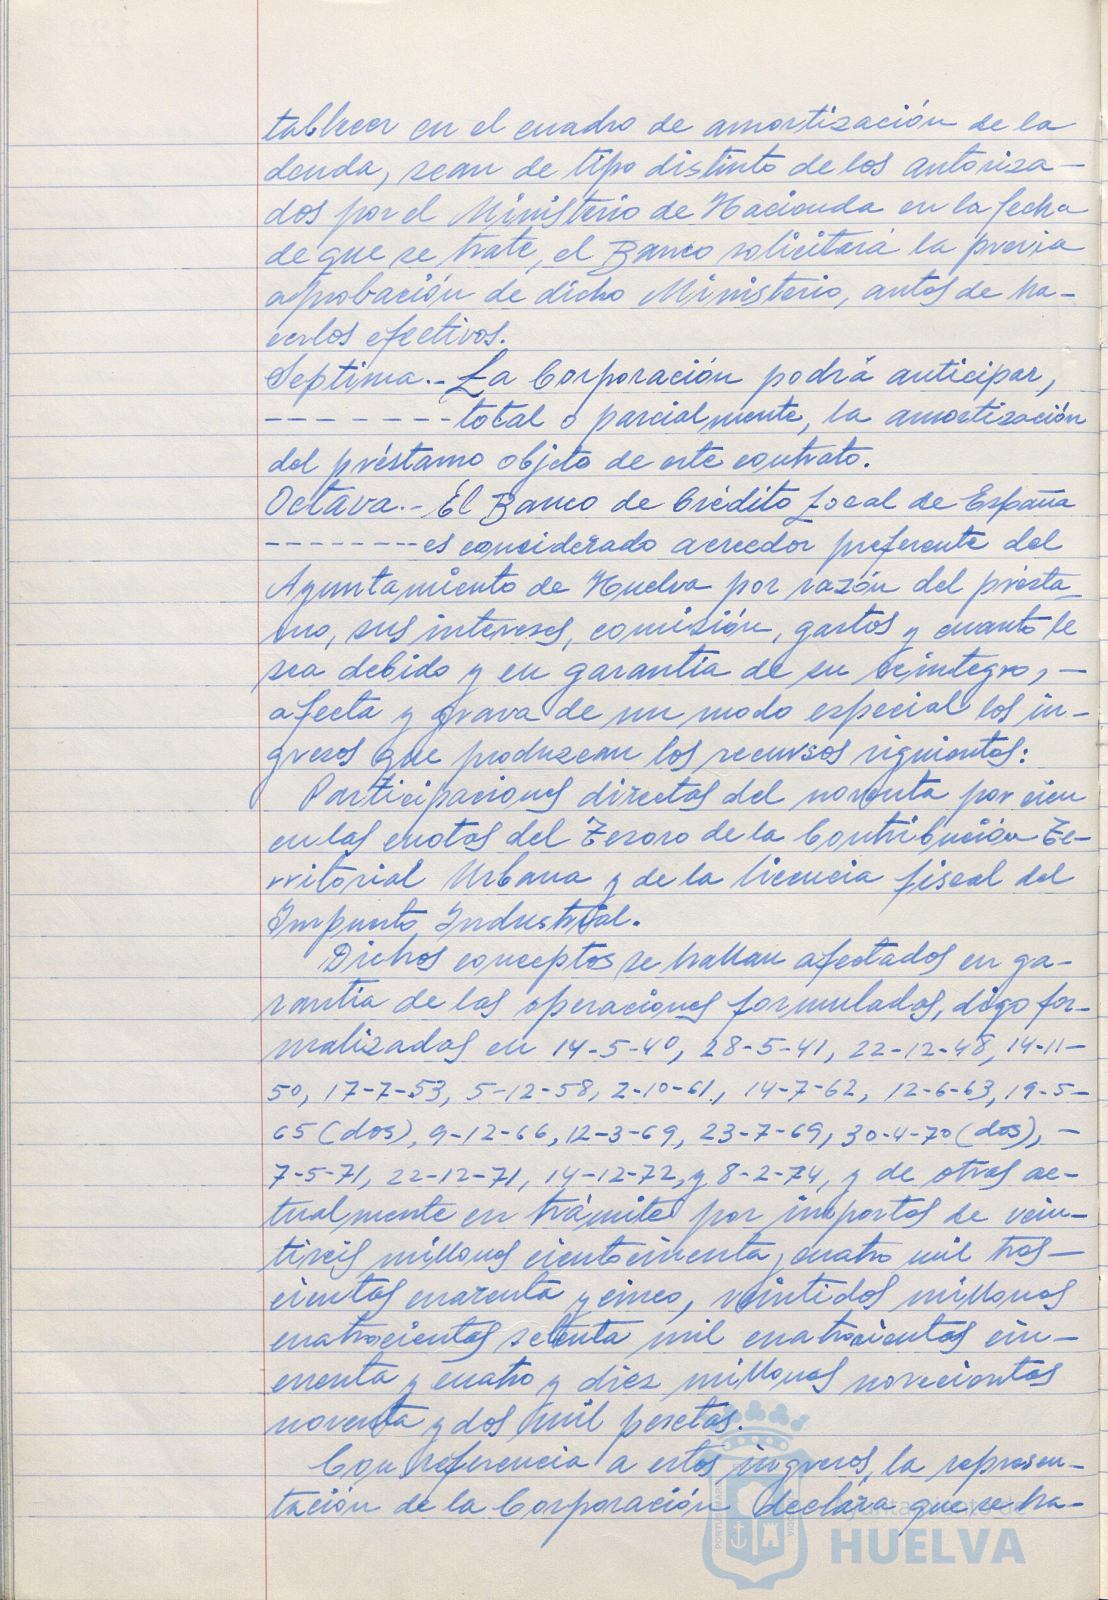 tablecer en el cuadro de amortización de la
deuda, sean de tipo distinto de los autoriza-
dos por el Ministerio de Hacienda en la fecha
de que se trate, el Banco solicitará la previa
aprobación de dicho Ministerio, antes de ha-
cerlos efectivos.
Septima.- La Corporación podrá anticipar,
--- ----total o parcialmente, la amortización
del préstamo objeto de este contrato.
Octava.- El Banco de Crédito Local de España
--------es considerado acreedor preferente del
Ayuntamiento de Huelva por razón del présta-
mo, sus intereses, comisión, gastos y cuanto le
sea debido y en garantía de su reintegro, -
afecta y grava de un modo especial los in-
gresos que produzcan los recursos siguientes:
Participaciones directas del noventa por cien
en las cuotas del Tesoro de la Contribución Te-
rritorial Urbana y de la licencia fiscal del
Impuesto Industrial.
Dichos conceptos se hallan afectados en ga-
rantía de las operaciones formuladas, digo for-
malizadas en 14-5-40, 28-5-41, 22-12-48, 14-11-
50, 17-7-53, 5-12-58, 2-10-61, 14-7-62, 12-6-63, 19-5-
65 (dos), 9-12-66, 12-3-69, 23-7-69, 30-4-70 (dos), -
7-5-71, 22-12-71, 14-12-72, y 8-2-74, y de otras ac-
tualmente en trámite por importes de vein-
tiseis millones cientocincuenta y cuatro mil tres-
cientas cuarenta y cinco, veintidos millones
cuatrocientas setenta mil cuatrocientas cin-
cuenta y cuatro y diez millones novecientas
noventa y dos mil pesetas.
Con referencia a estos ingresos, la represen-
tación de la Corporación declara que se ha-
Ayuntamiento de
HUELVA